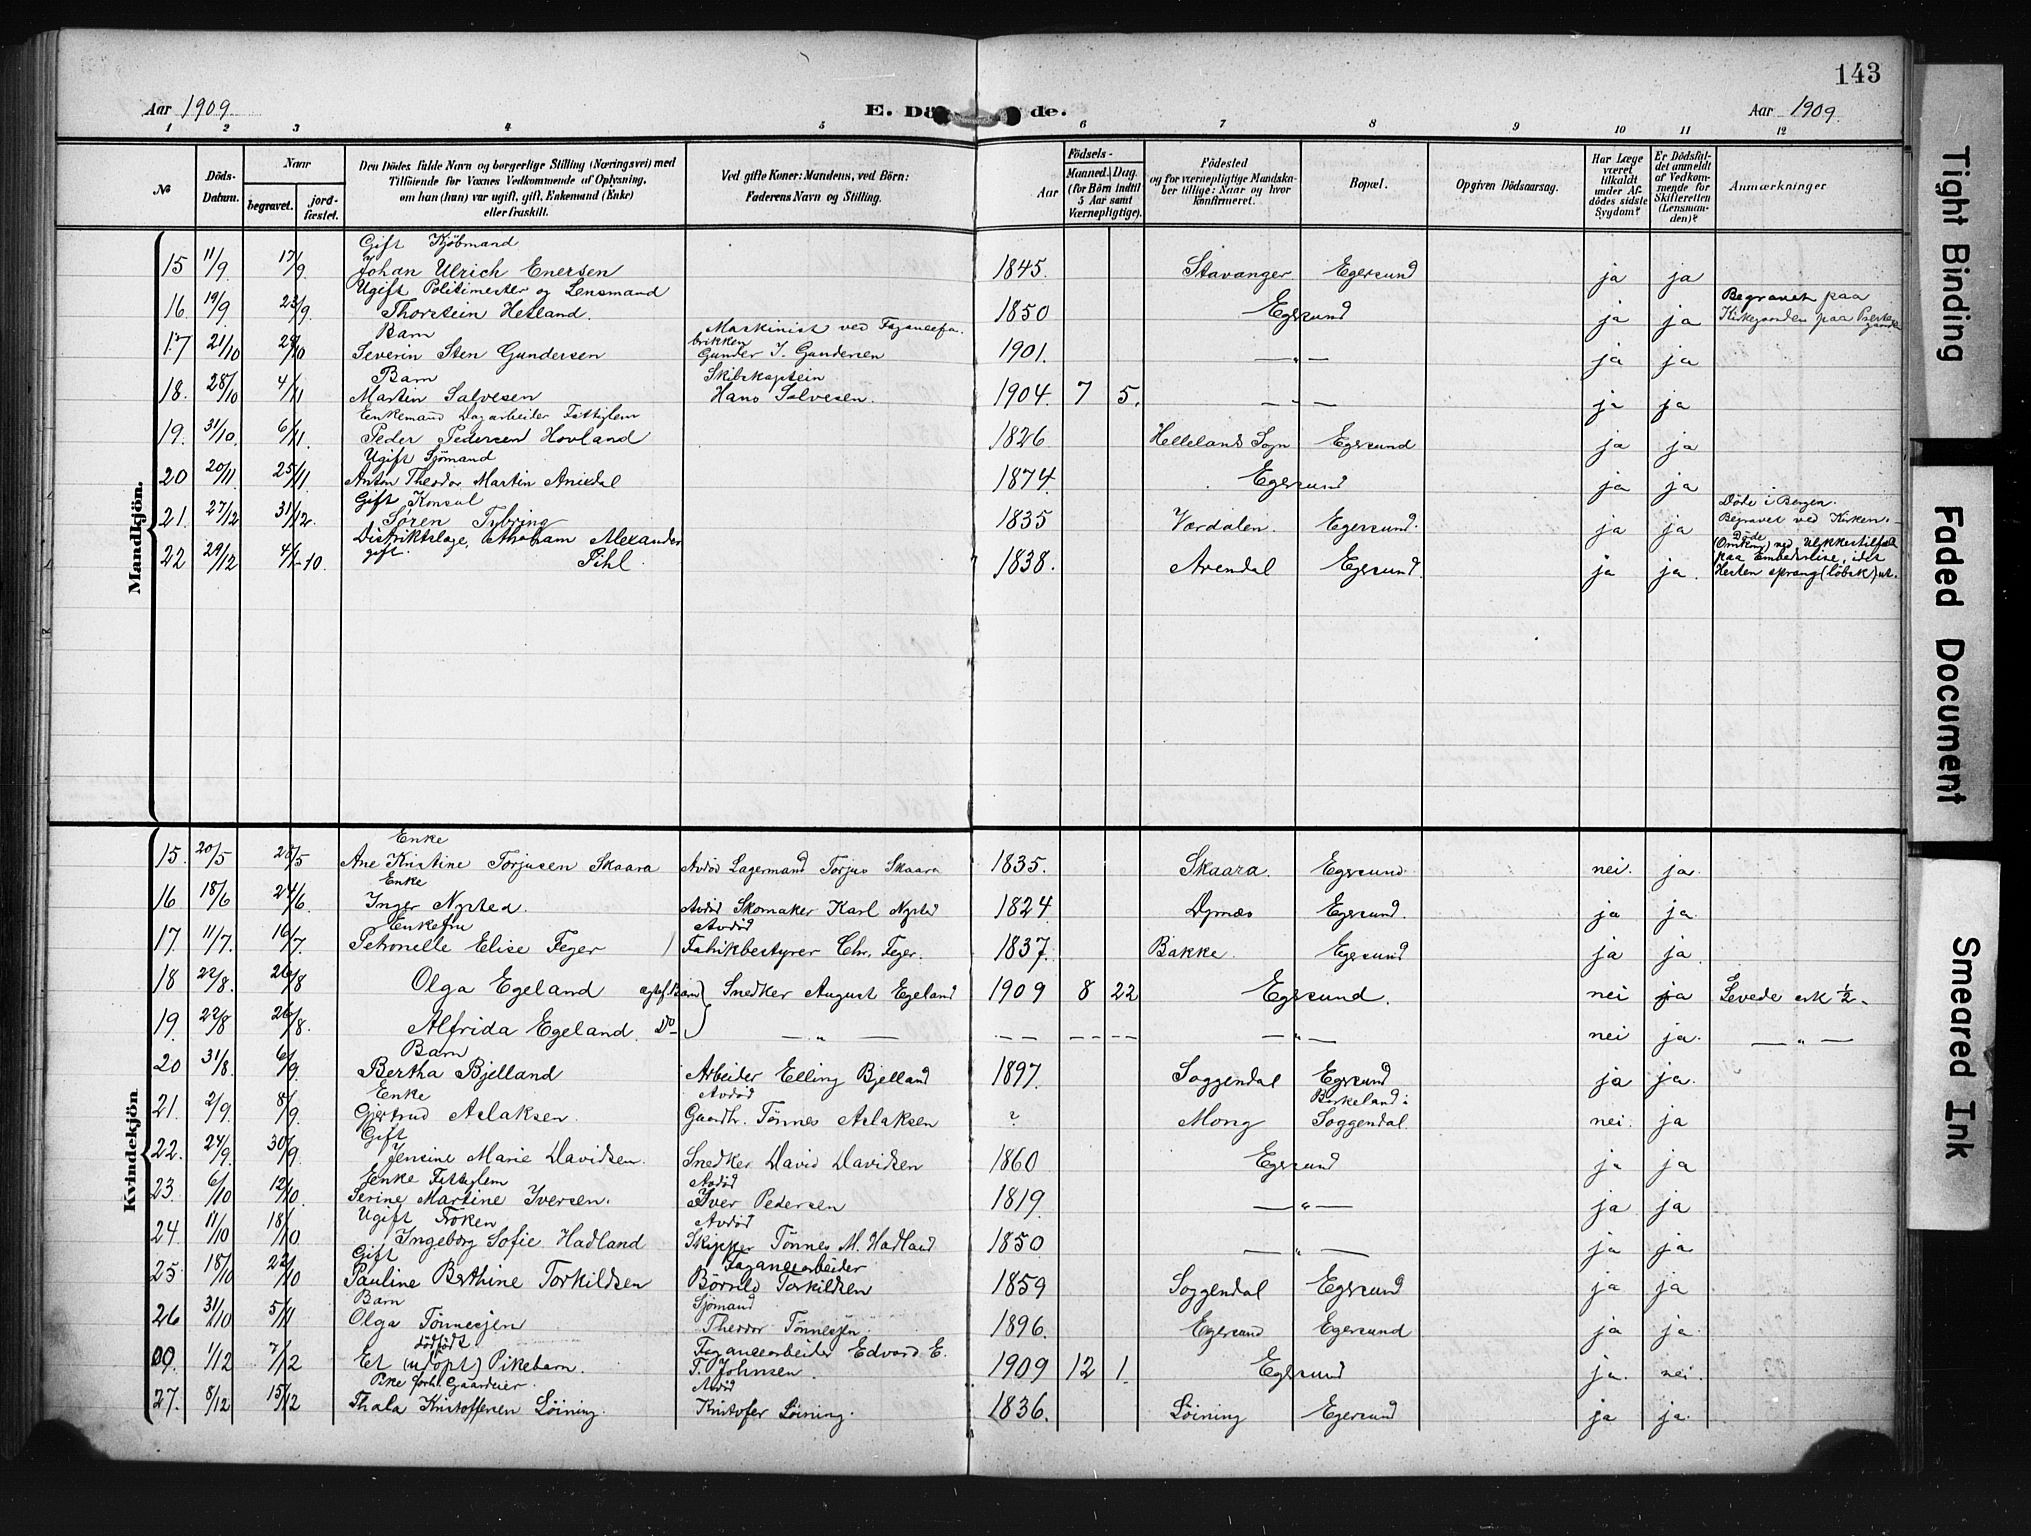 143
Aar 1909.
E. Dö de.
Aar 1909.
1 2 3 4 5 6 7 8 9 10 11 12
№
Döds-
Datum.
Naar
begravet.
jord-
fæstet.
Den Dödes fulde Navn og borgerlige Stilling (Næringsvei) med
Tilföiende for Voxnes Vedkommende af Oplysning,
om han (hun) var ugift, gift, Enkemand (Enke)
eller fraskilt.
Ved gifte Koner: Mandens, ved Börn:
Faderens Navn og Stilling.
Födsels-
Aar
Maaned. Dag.
(for Börn indtil
5 Aar samt
Værnepligtige).
Födested
og for værnepligtige Mandska-
ber tillige: Naar og hvor
konfirmeret.
Bopæl.
Opgiven Dödsaarsag.
Har Læge
været
tilkaldt
under Af-
dödes sidste
Sygdom?
Er Dödsfal-
det anmeldt
af Vedkom-
mende for
Skifteretten
(Lensman-
den)?
Anmærkninger
Mandkjön.
Gift Kjøbmand
15 11/9 17/9 Johan Ulrich Enersen 1845. Stavanger Egersund ja ja
Ugift Politimester og Lensmand
16 19/9 23/9 Thorstein Hetland. 1850 Egersund ja ja Begravet paa
Kirkegaarden paa
Barn Maskinist ved Fayancefa-
brikken
17 21/10 29/10 Severin Sten Gundersen Gunder I. Gundersen 1901. — " — ja ja
Barn Skibskaptein
18. 28/10 4/11 Martin Salvesen Hans Salvesen. 1904. 7 5. — " — ja ja
Enkemand Dagarbeider Fattiglem
19. 31/10. 6/11. Peder Pedersen Hovland 1826 Hellelands Sogn Egersund ja ja
Ugift Sjømand
20 20/11. 25/11 Anton Theodor Martin Anixdal 1874. Egersund ja ja
Gift Konsul
21. 27/12 31/12. Søren Tybring 1835 Værdalen. Egersund. ja ja Døde i Bergen.
Begravet ved Kirken.
Distriktslæge, Abraham Alexander
22 29/12 4/1-10. gift. Pihl. 1838. Arendal Egersund. ja ja. Døde
(Omkom) ved Ulykkestilfælde
paa Embedsreise, idet
Hesten sprang (løbsk) ut.
Kvindekjön
Enke
15. 20/5 28/5 Ane Kristine Torjusen Skaara Avdød Lagermand Torjus Skaara 1835. Skaara. Egersund. nei. ja.
Enke
16 18/6 24/6. Inger Nysted. Avdød Skomaker Karl Nysted 1824 Dymæs Egersund. ja ja.
Enkefru Avdød
17 11/7. 16/7 Petronelle Elise Feyer Fabrikbestyrer Chr. Feyer. 1837. Bakke. Egersund ja ja.
18 22/8. 26/8 Olga Egeland egtef. Barn Snedker August Egeland 1909 8 22 Egersund. nei ja Levede ca ½.
19. 22/8 26/8. Alfrida Egeland. Do — " — — — — — — — — " — nei ja. — " —
Barn
20 31/8. 6/9 Bertha Bjelland Arbeider Elling Bjelland 1897. Soggendal Egersund ja ja.
Enke Avdød Birkeland i
21. 2/9. 8/9 Gjertrud Aslaksen. Gaardbr. Tønnes Aslaksen ? Mong Soggendal. nei. ja
Gift
22. 24/9. 30/9 Jensine Marie Davidsen. Snedker David Davidsen 1860 Egersund ja ja
Enke Fattiglem Avdød
23. 6/10 12/10. Serine Martine Iversen. Iver Pedersen 1819. — " — ja ja
Ugift Frøken Avdød
24. 11/10 18/10 Ingeborg Sofie Hadland Skipper Tønnes M. Hadland 1850. — " — ja ja.
Gift Fayancearbeider
25. 18/10 22/10 Pauline Berthine Torkildsen Børnild Torkildsen 1859 Soggendal Egersund ja ja
Barn Sjømand
26 31/10 5/11 Olga Tönnesjen Theodor Tönnesjen. 1896. Egersund Egersund ja ja.
dödfödt Fayancearbeider Edvard E.
00. 1/12 7/12 Et (udøpt) Pikebarn. T. Johnsen. 1909 12 1. Egersund ja. nei.
Pike forh. Gaardeier. Avdød
27. 8/12 15/12 Thala Kristoffersen Löining. Kristofer Löining. 1836. Löining Egersund ja ja.
Tight Binding
Faded Document
Smeared Ink